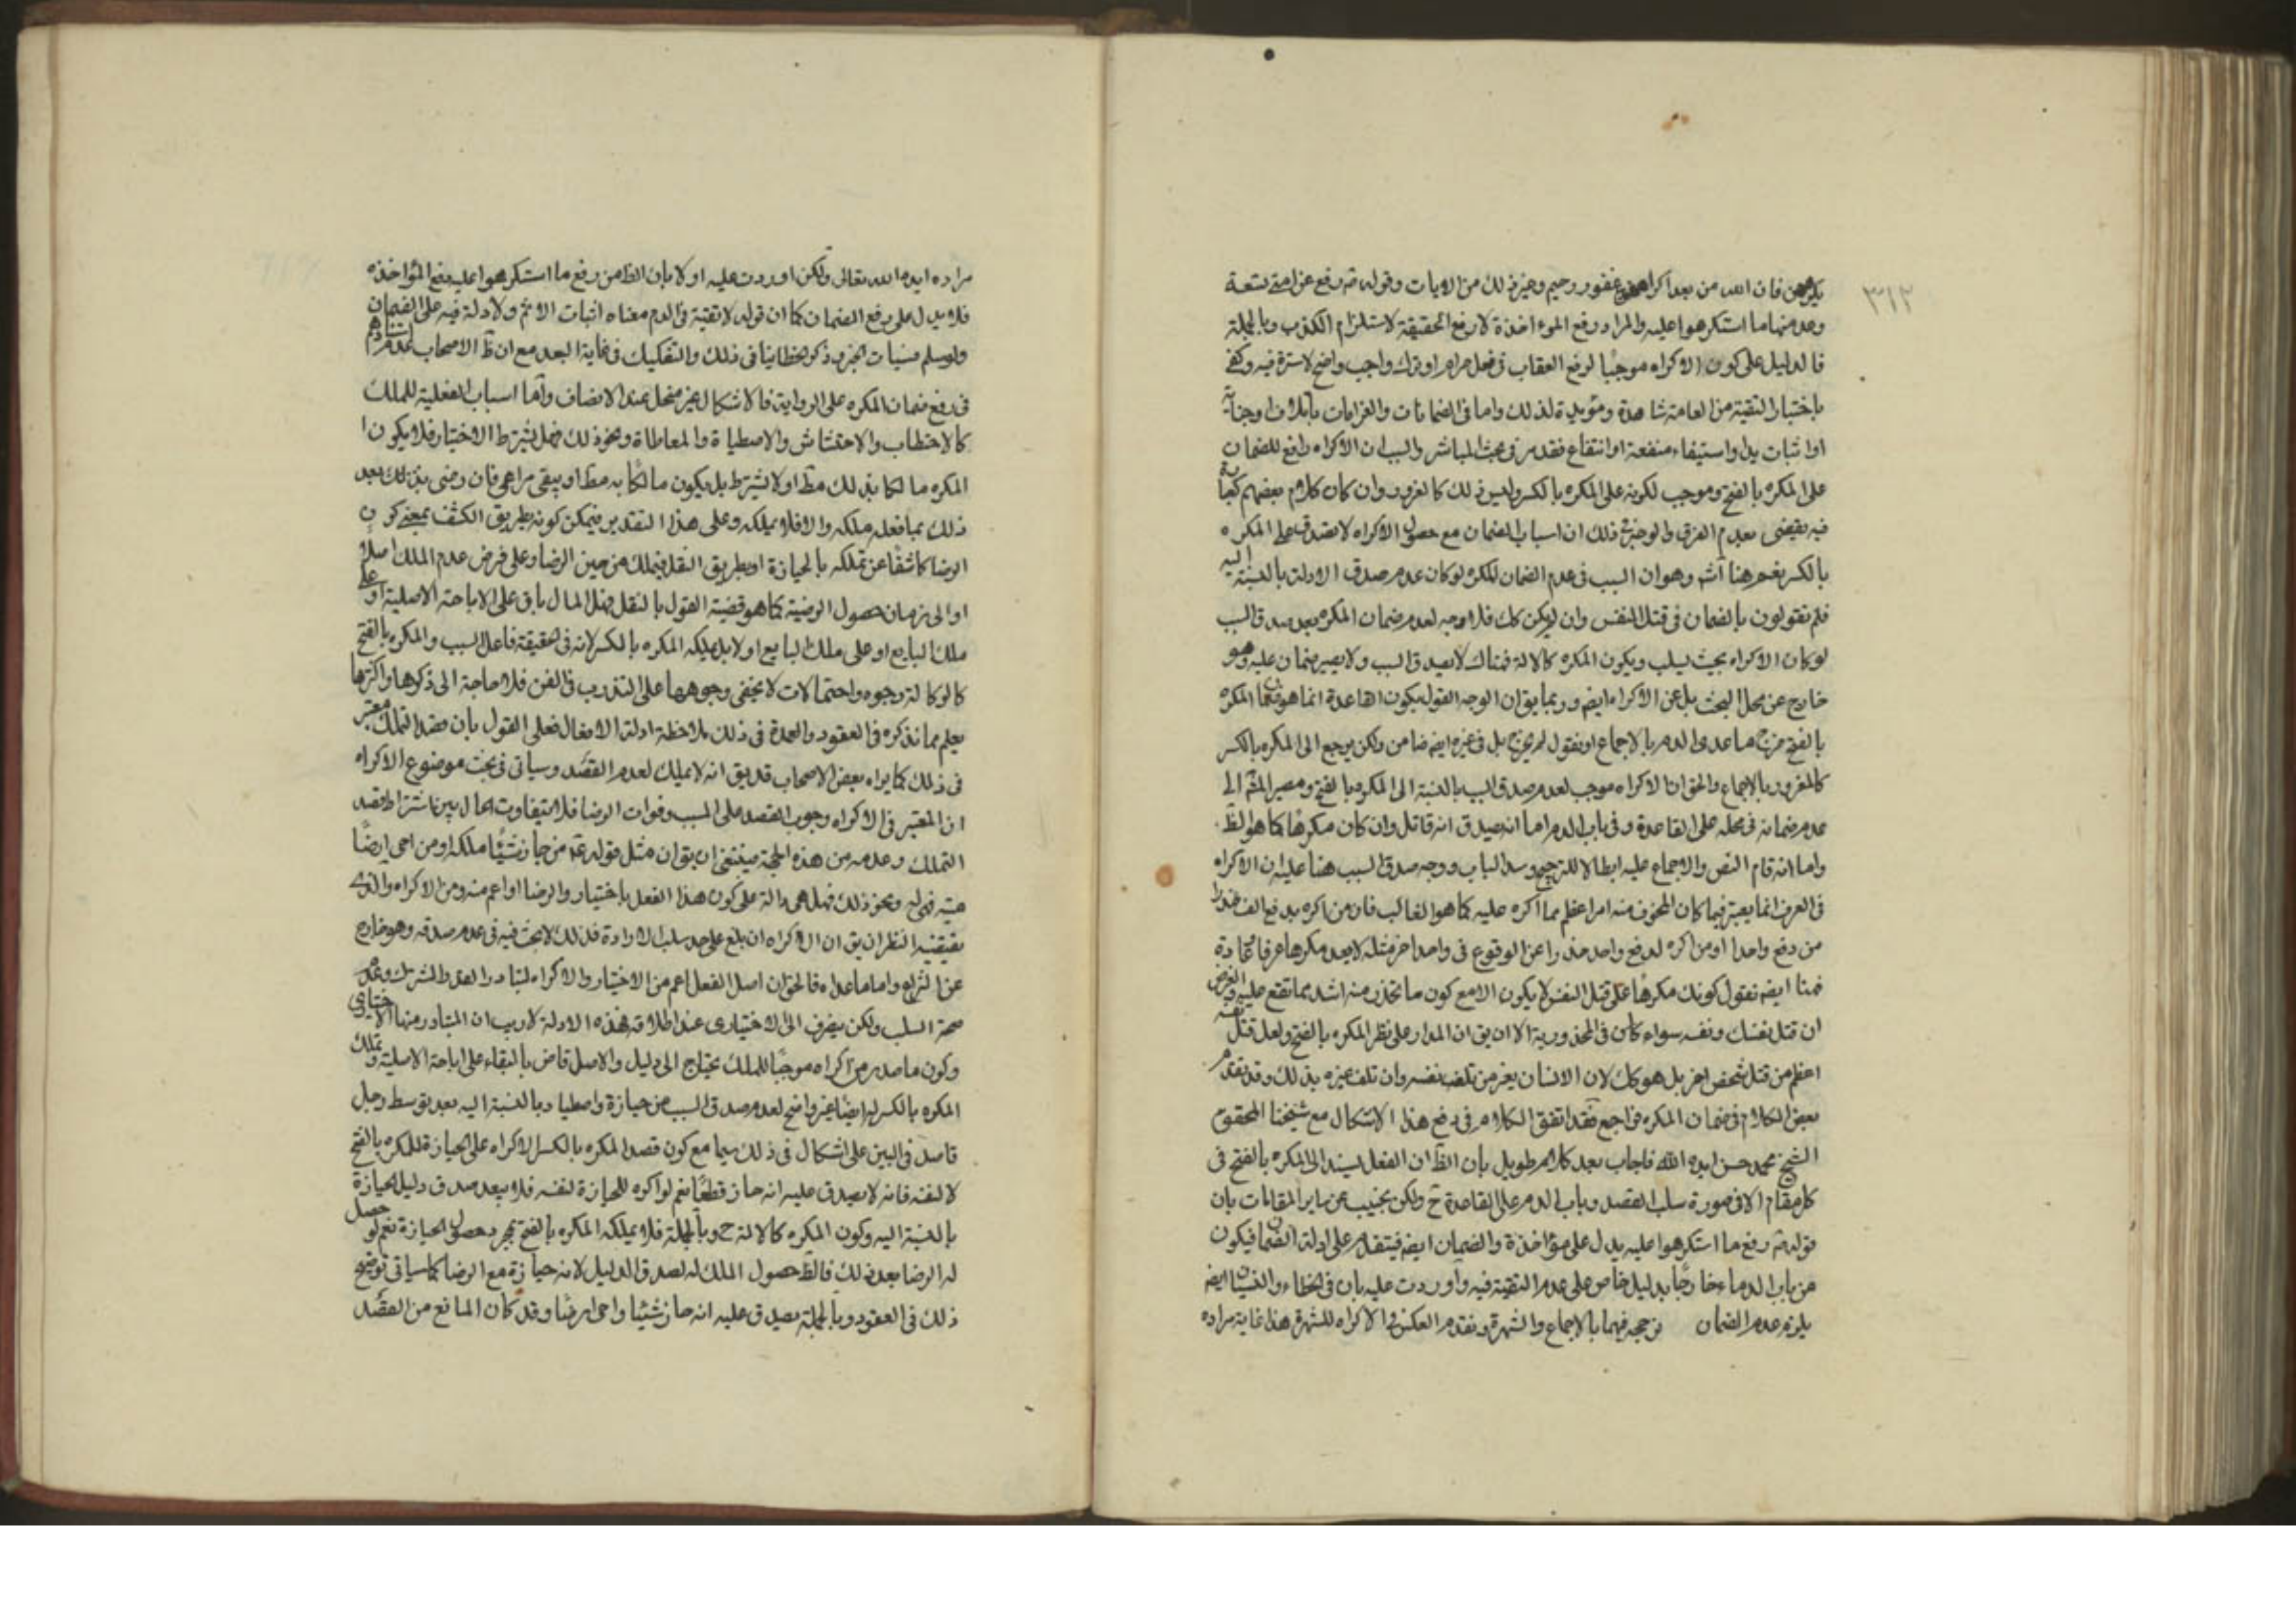 ٣١٢
يكرههن فان الله من بعد اكراههن غفور رحيم وغير ذلك من الايات وقوله رفع عن امتي تسعة
وعد منها ما استكرهوا عليه والمراد رفع المؤاخذة لا رفع الحقيقة لاستلزام الكذب وبالجملة
فالدليل على كون الاكراه موجبا لرفع العقاب في فعل حرام او ترك واجب واضح لا سترة فيه وكفى
باخبار التقية من العامة شاهدة ومؤيدة لذلك واما في الضمانات والغرامات باتلاف او جناية
او اثبات يد او استيفاء منفعة او انتفاع فقد مر في بحث المباشر والسبب ان الاكراه رافع للضمان
على المكره بالفتح وموجب لكونه على المكره بالكسر وليس ذلك كالغرور وان كان كلام بعضهم
فيه يقضى بعدم الفرق والوجه في ذلك ان اسباب الضمان مع حصول الاكراه لا تصدق على المكره
بالكسر نعم هنا وهو ان السبب في عدم الضمان للمكره لو كان عدم صدق الادلة بالنسبة اليه
فلم تقولون بالضمان في قتل النفس وان لم يكن كك فلا وجه لعدم ضمان المكره بعد صدق السبب
لو كان الاكراه بحيث يسلب ويكون المكره كالالة فهناك لا يصدق السبب ولا يصير ضمان عليه وهو
خارج عن محل البحث بل عن الاكراه ايضا وربما يق ان الوجه القول بكون القاعدة انما هو ضمان المكره
بالفتح خرج ما عدى الدم بالاجماع او نقول لم يخرج بل في غيره ايضا ضامن ولكن يرجع الى المكره بالكسر
كالمغرور بالاجماع والحق ان الاكراه موجب لعدم صدق السبب بالنسبة الى المكره بالفتح ومصير الى
عدم ضمانه في محله على القاعدة وفي باب الدم اما انه يصدق انه قاتل وان كان مكرها كما هو الظ
واما انه قام النص والاجماع عليه ابطالا للترجيح وسد الباب ووجه صدق السبب هنا عليه ان الاكراه
في العرف انما يعتبر فيما كان المخوف منه امرا اعظم مما اكره عليه كما هو الغالب فان من اكره بدفع الف حذرا
من دفع واحد او من اكره لدفع واحد حذرا عن الوقوع في واحد اخر مثله لا يعد مكرها عرفا وعادة
فهنا ايضا نقول كونك مكرها على قتل النفس لا يكون الا مع كون ما تحذر منه اشد مما تقع عليه والغرض
ان قتل نفسك ونفسه سواء كان في المحذورية الا ان يق ان المدار على نظر المكره بالفتح ولعل قتل نفسه
اعظم من قتل شخص اخر بل هو كك لان الانسان يفر من تلف نفسه وان تلف غيره بذلك وقد تقدم
بعض الكلام في ضمان المكره فراجع فقد اتفق الكلام في دفع هذا الاشكال مع شيخنا المحقق
الشيخ محمد حسن ايده الله فاجاب بعد كلام طويل بان الظ ان الفعل يسند الى المكره بالفتح في
كل مقام الا في صورة سلب القصد وباب الدم على القاعدة ح ولكن نجيب عن ساير المقامات بان
قوله رفع ما استكرهوا عليه يدل على مؤاخذة والضمان ايضا فيقدم على ادلة الضمان فيكون
من باب الدماء خارجا بدليل خاص على عدم التقية فيه واوردت عليه بان في الخطاء والنسيان ايضا
يلزم عدم الضمان نرجحه فيهما بالاجماع والشهرة ونقدم العكس في الاكراه للشهرة هذا غاية مراده
مراده ايده الله تعالى ولكن اوردت عليه اولا بان الظ من رفع ما استكرهوا عليه رفع المؤاخذه
فلا يدل على رفع الضمان كما ان قوله لا تقية في الدم معناه اثبات الاثم ولا دلالة فيه على الضمان
ولو سلم فسيات الخبر وذكر الخطا ينافى ذلك والتفكيك في غاية البعد مع ان ظ الاصحاب عدم استنادهم
في رفع ضمان المكره على الرواية فالاشكال غير منحل عند الانصاف واما اسباب الفعلية للملك
كالاحتطاب والاحتشاش والاصطياد والمعاطاة ونحو ذلك فهل يشترط الاختيار فلا يكون
المكره مالكا بذلك مط او لا يشترط بل يكون مالكا به مط او يبقى مراعى فان رضى بذلك بعد
ذلك بما فعله ملكه والا فلا يملكه وعلى هذا التقدير فيمكن كونه بطريق الكشف بمعنى كون
الرضا كاشفا عن تملكه بالحيازة او بطريق النقل فيملك من حين الرضا وعلى فرض عدم الملك اصلا
او الى زمان حصول الرضية كما هو قضية القول بالنقل فهل المال باق على الاباحة الاصلية او على
ملك البايع او على ملك البايع او لا بل يملكه المكره بالكسر لانه في الحقيقة فاعل السبب والمكره بالفتح
كالوكالة وجوه واحتمالات لا يخفى وجوهها على المتدرب في الفن فلا حاجة الى ذكرها واكثرها
يعلم مما نذكره في العقود والعمدة في ذلك ملاحظة ادلة الافعال فعلى القول بان قصد التملك معتبر
في ذلك كما يراه بعض الاصحاب قد يق انه لا يملك لعدم القصد وسياتى في بحث موضوع الاكراه
ان المعتبر في الاكراه وجوب القصد على السبب وفوات الرضا فلا يتفاوت الحال بين اشتراط قصد
التملك وعدمه من هذه الجهة فينبغى ان يق ان مثل قوله من حاز شيئا ملكه او من احى ارضا
ميتة فهى له ونحو ذلك فهل هى دالة على كون هذا الفعل باختيار والرضا او اعم منه ومن الاكراه والذى
يقتضيه النظر ان يق ان الاكراه ان بلغ على حد سلب الارادة فذلك لا بحث فيه في عدم صدقه وهو خارج
عن النزاع واما ما عداه فالحق ان اصل الفعل اعم من الاختيار والاكراه لتبادر القدر المشترك وعدم
صحة السلب ولكن ينصرف الى الاختيارى عند اطلاقه فهذه الادلة لا ريب ان المتبادر منها الاختيارى
وكون ما صدر من اكراه موجبا للملك يحتاج الى دليل والاصل قاض بالبقاء على اباحة الاصلية وتملك
المكره بالكسر له ايضا غير واضح لعدم صدق السبب من حيازة واصطياد بالنسبة اليه بعد توسط رجل
قاصد في البين على اشكال في ذلك سيما مع كون قصد المكره بالكسر الاكراه على الحيازة للمكره بالفتح
لا لنفسه فانه لا يصدق عليه انه حاز قطعا نعم لو اكره للحيازة لنفسه فلا يبعد صدق دليل الحيازة
بالنسبة اليه وكون المكره كالالة ح وبالجملة فلا يملكه المكره بالفتح بمجرد حصول الحيازة نعم لو حصل
له الرضا بعد ذلك فالظ حصول الملك له لصدق الدليل لانه حيازة مع الرضا كما سياتى توضيح
ذلك في العقود وبالجملة يصدق عليه انه حاز شيئا واحى ارضا وقد كان المانع من القصد